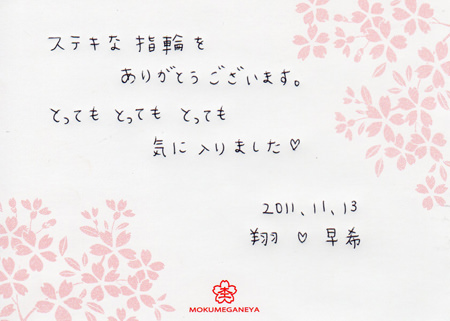 ステキな指輪を
ありがとうございます。
とっても とっても とっても
気に入りました♡
2011.11.13
翔 ♡ 早希
MOKUMEGANEYA